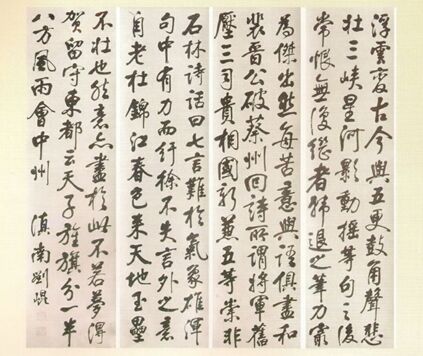 浮雲變古今與五更鼓角聲悲
壯三峽星河影動搖等句之後
常恨無復繼者韓退之筆力最
為傑出然每苦意與語俱盡和
裴晉公破蔡州回詩所謂將軍舊
壓三司貴相國新兼五等崇非
石林詩話曰七言難於氣象雄渾
句中有力而紆徐不失言外之意
自老杜錦江春色來天地玉壘
不壯也然意盡於此不若夢得
賀留守東都云天子旌旗分一半
八方風雨會中州 滇南劉焜